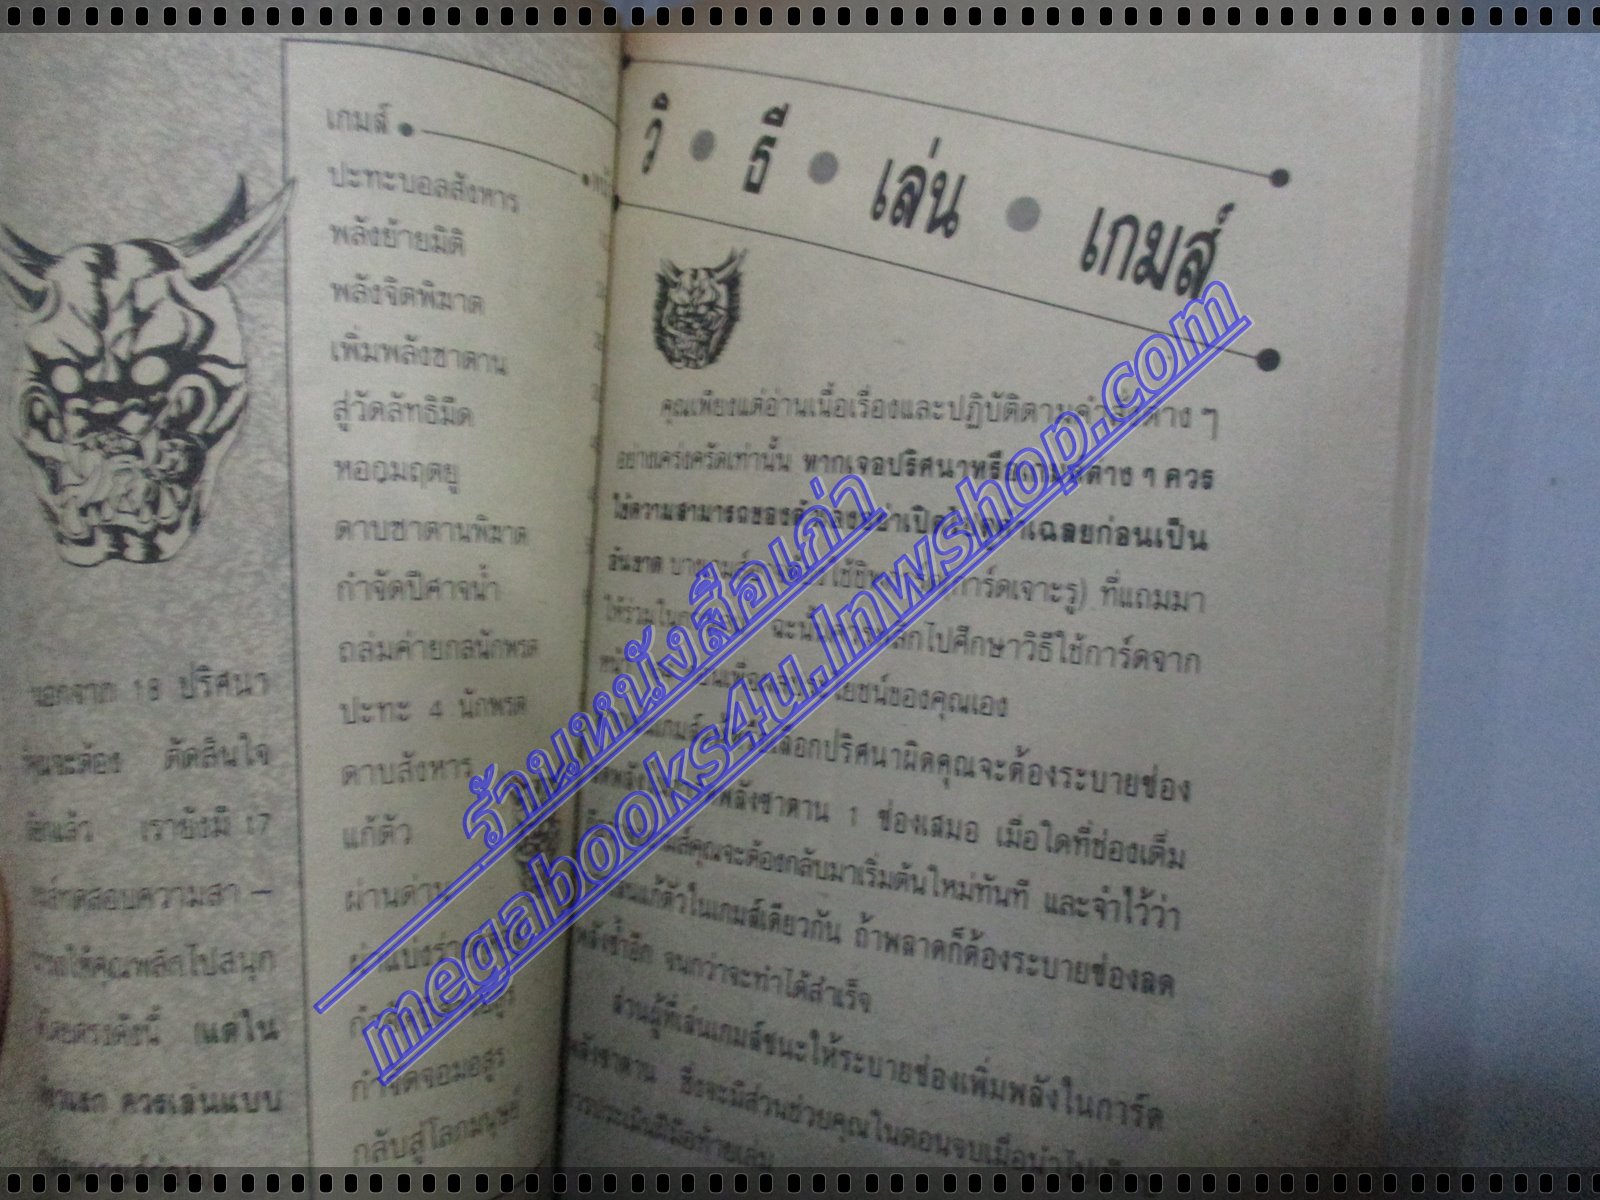 นอกจาก 18 ปริศนา
คุณจะต้อง ตัดสินใจ
แล้ว เรายังมี 17
ทดสอบความสา –
ให้คุณพลิกไปสนุก
โดยตรงดังนี้ (แต่ใน
ควรเล่นแบบ
เกมส์
ปะทะบอลสังหาร
พลังย้ายมิติ
พลังจิตพิฆาต
เพิ่มพลังซาตาน
สู่วัดลัทธิมืด
หอกมฤตยู
ดาบซาตานพิฆาต
กำจัดปีศาจน้ำ
ถล่มค่ายกลนักพรต
ปะทะ 4 นักพรต
ดาบสังหาร
แก้ตัว
ผ่านด่าน
ผ่าแบ่งร่าง
กำจัดจอมอสูร
กลับสู่โลกมนุษย์
วิ • ธี • เล่น • เกมส์
คุณเพียงแต่อ่านเนื้อเรื่องและปฏิบัติตามคำสั่งต่าง ๆ
อย่างเคร่งครัดเท่านั้น หากเจอปริศนาหรือเกมส์ต่าง ๆ ควร
ใช้ความสามารถของตัวเองอย่าเปิดไปดูคำเฉลยก่อนเป็น
อันขาด บางเกมส์ ใช้ (การ์ดเจาะรู) ที่แถมมา
ให้ร่วมใน ฉะนั้นควรพลิกไปศึกษาวิธีใช้การ์ดจาก
หน้า เพื่อผลประโยชน์ของคุณเอง
เกมส์ เลือกปริศนาผิดคุณจะต้องระบายช่อง
ลดพลัง พลังซาตาน 1 ช่องเสมอ เมื่อใดที่ช่องเต็ม
คุณจะต้องกลับมาเริ่มต้นใหม่ทันที และจำไว้ว่า
เล่นแก้ตัวในเกมส์เดียวกัน ถ้าพลาดก็ต้องระบายช่องลด
พลังซ้ำอีก จนกว่าจะทำได้สำเร็จ
ส่วนผู้ที่เล่นเกมส์ชนะให้ระบายช่องเพิ่มพลังในการ์ด
พลังซาตาน ซึ่งจะมีส่วนช่วยคุณในตอนจบเมื่อนำไป
การประเมินฝีมือท้ายเล่ม
ร้านหนังสือเก่า
megabooks4u.lnwshop.com